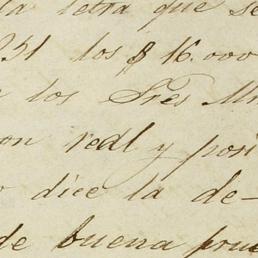 la letra que se
231 los $ 16.000
los Sres
on real y posi
dice la de-
de buena prue